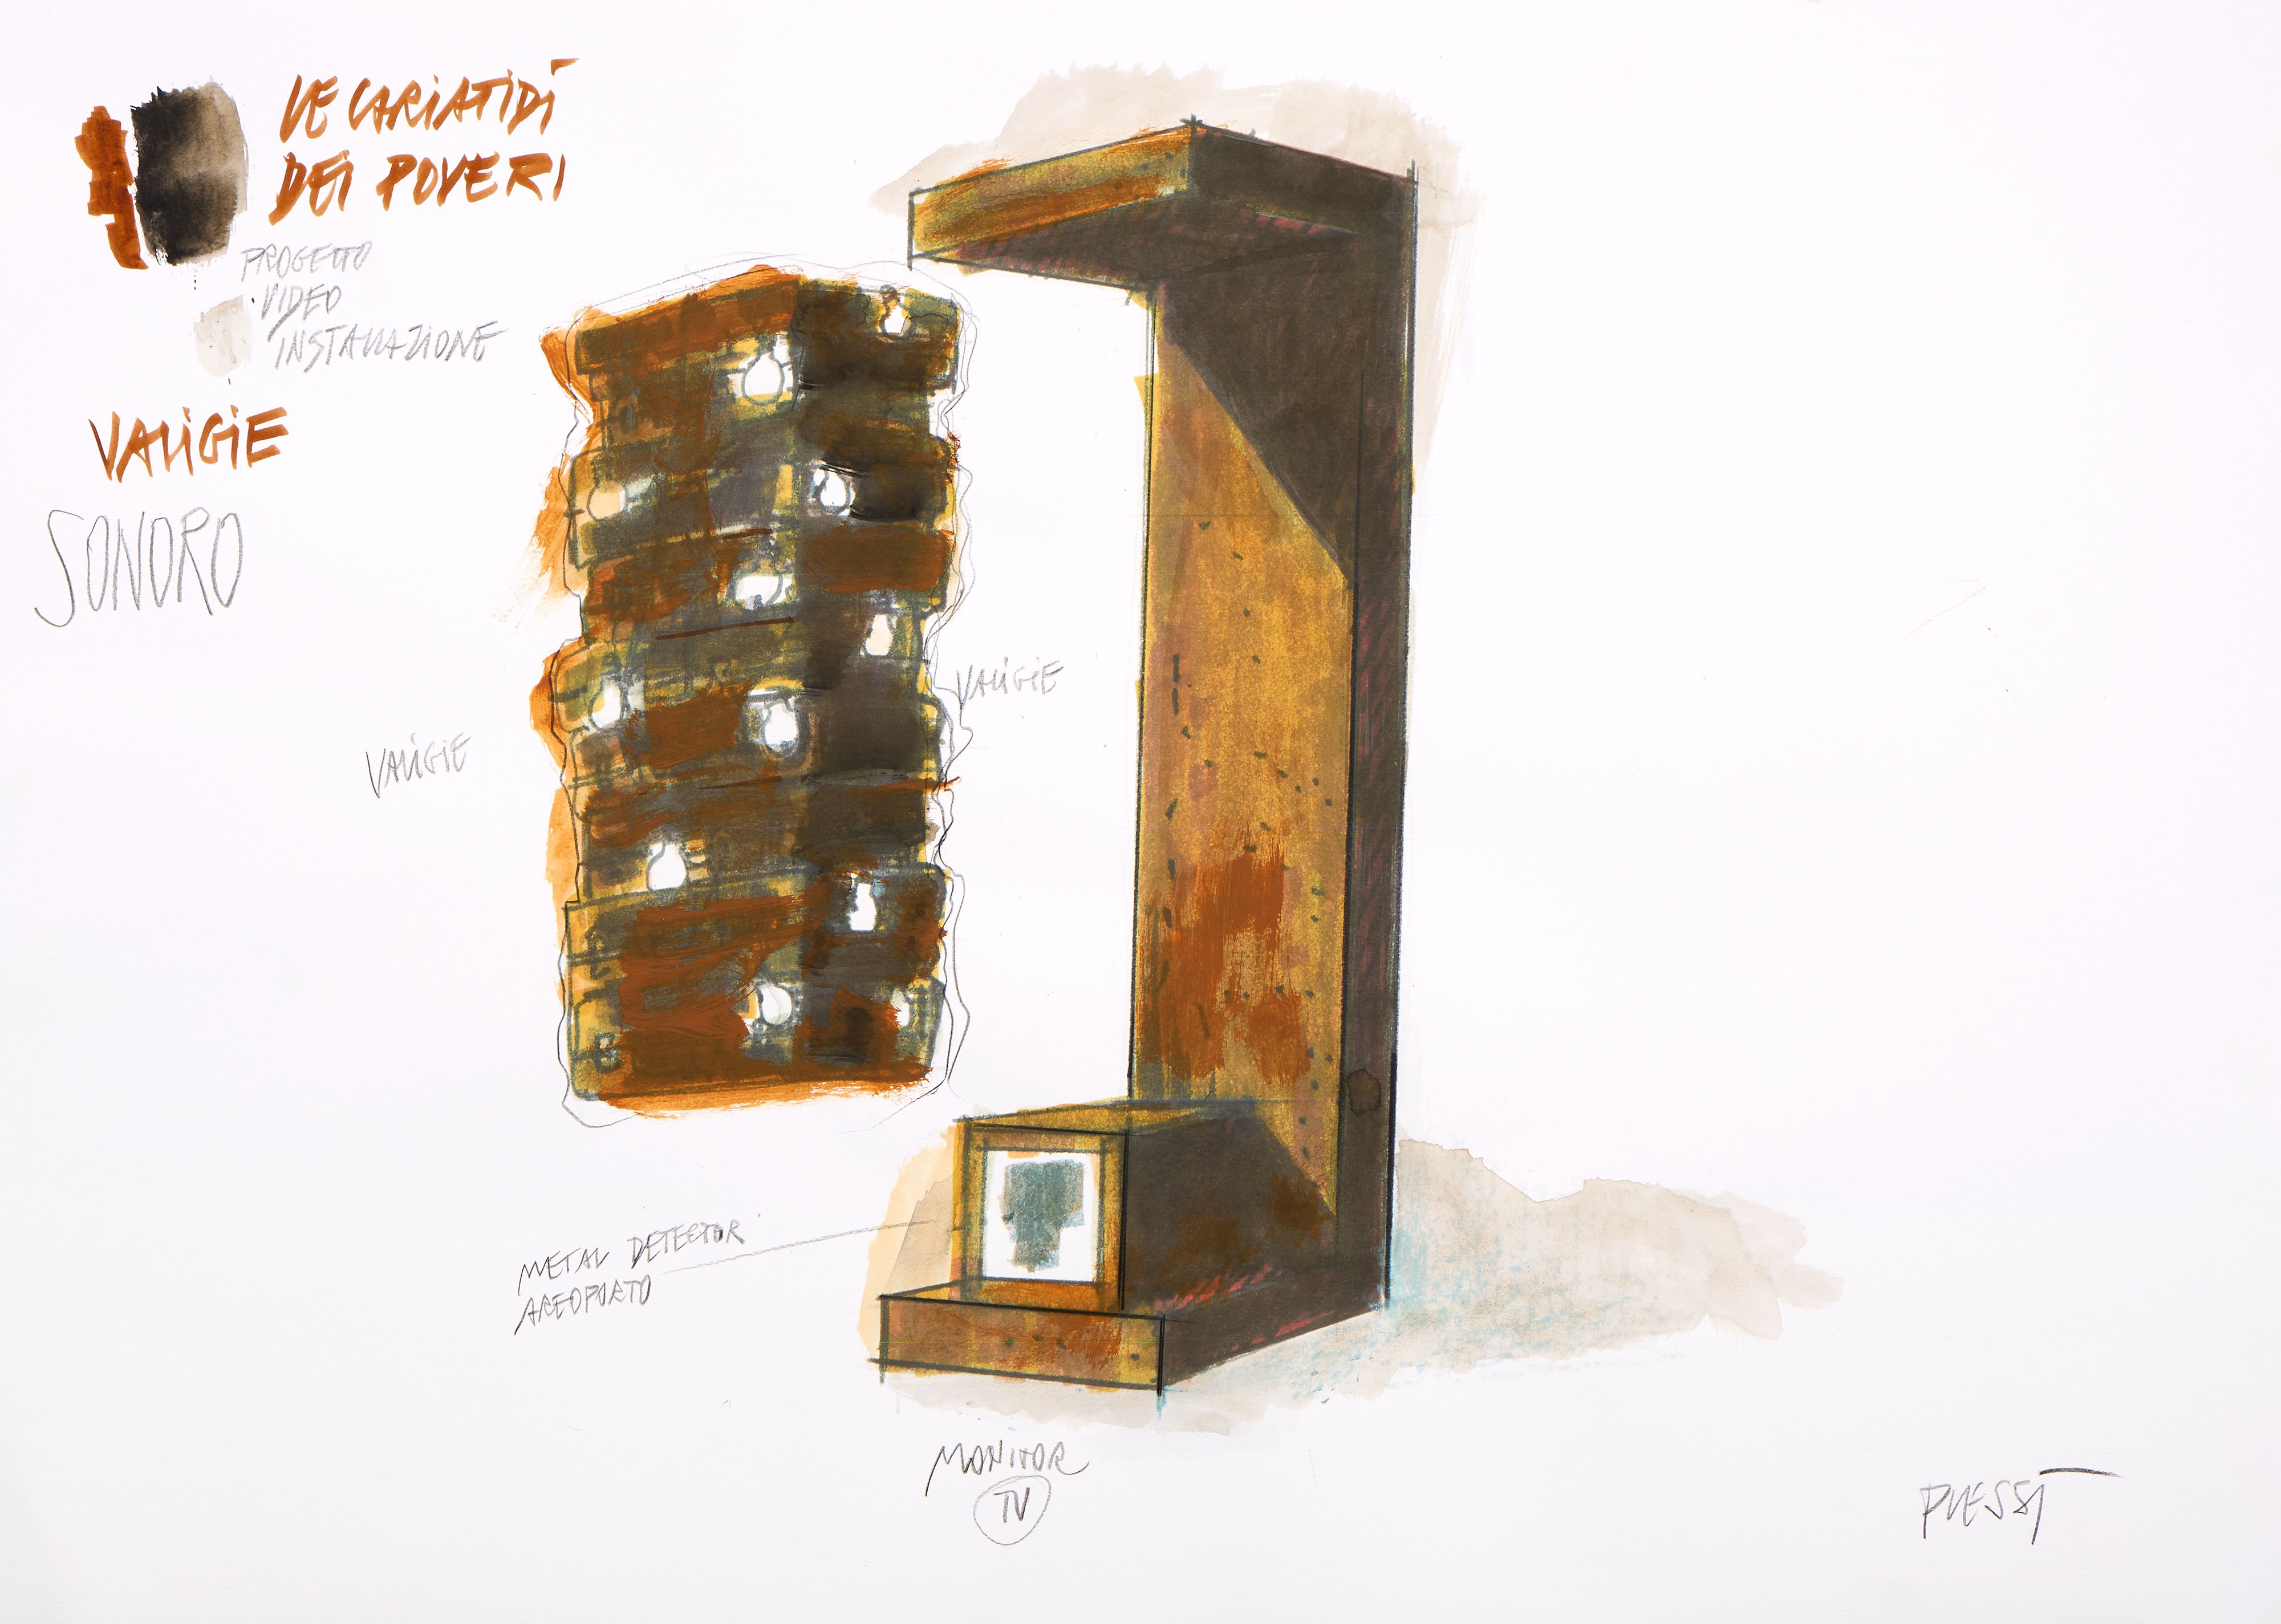 LE CARIATIDI
DEI POVERI
PROGETTO
VIDEO
INSTALLAZIONE
VALIGIE
SONORO
VALIGIE
VALIGIE
METAL DETECTOR
AREOPORTO
MONITOR
TV
PLESSI